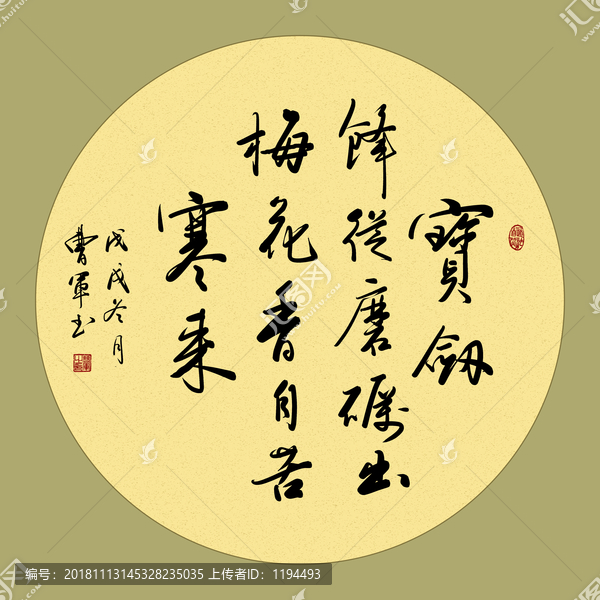 寶劔
鋒從磨礪出
梅花香自苦
寒来
戊戌冬月
曹軍书
编号：20181113145328235035 上传者ID：1194493